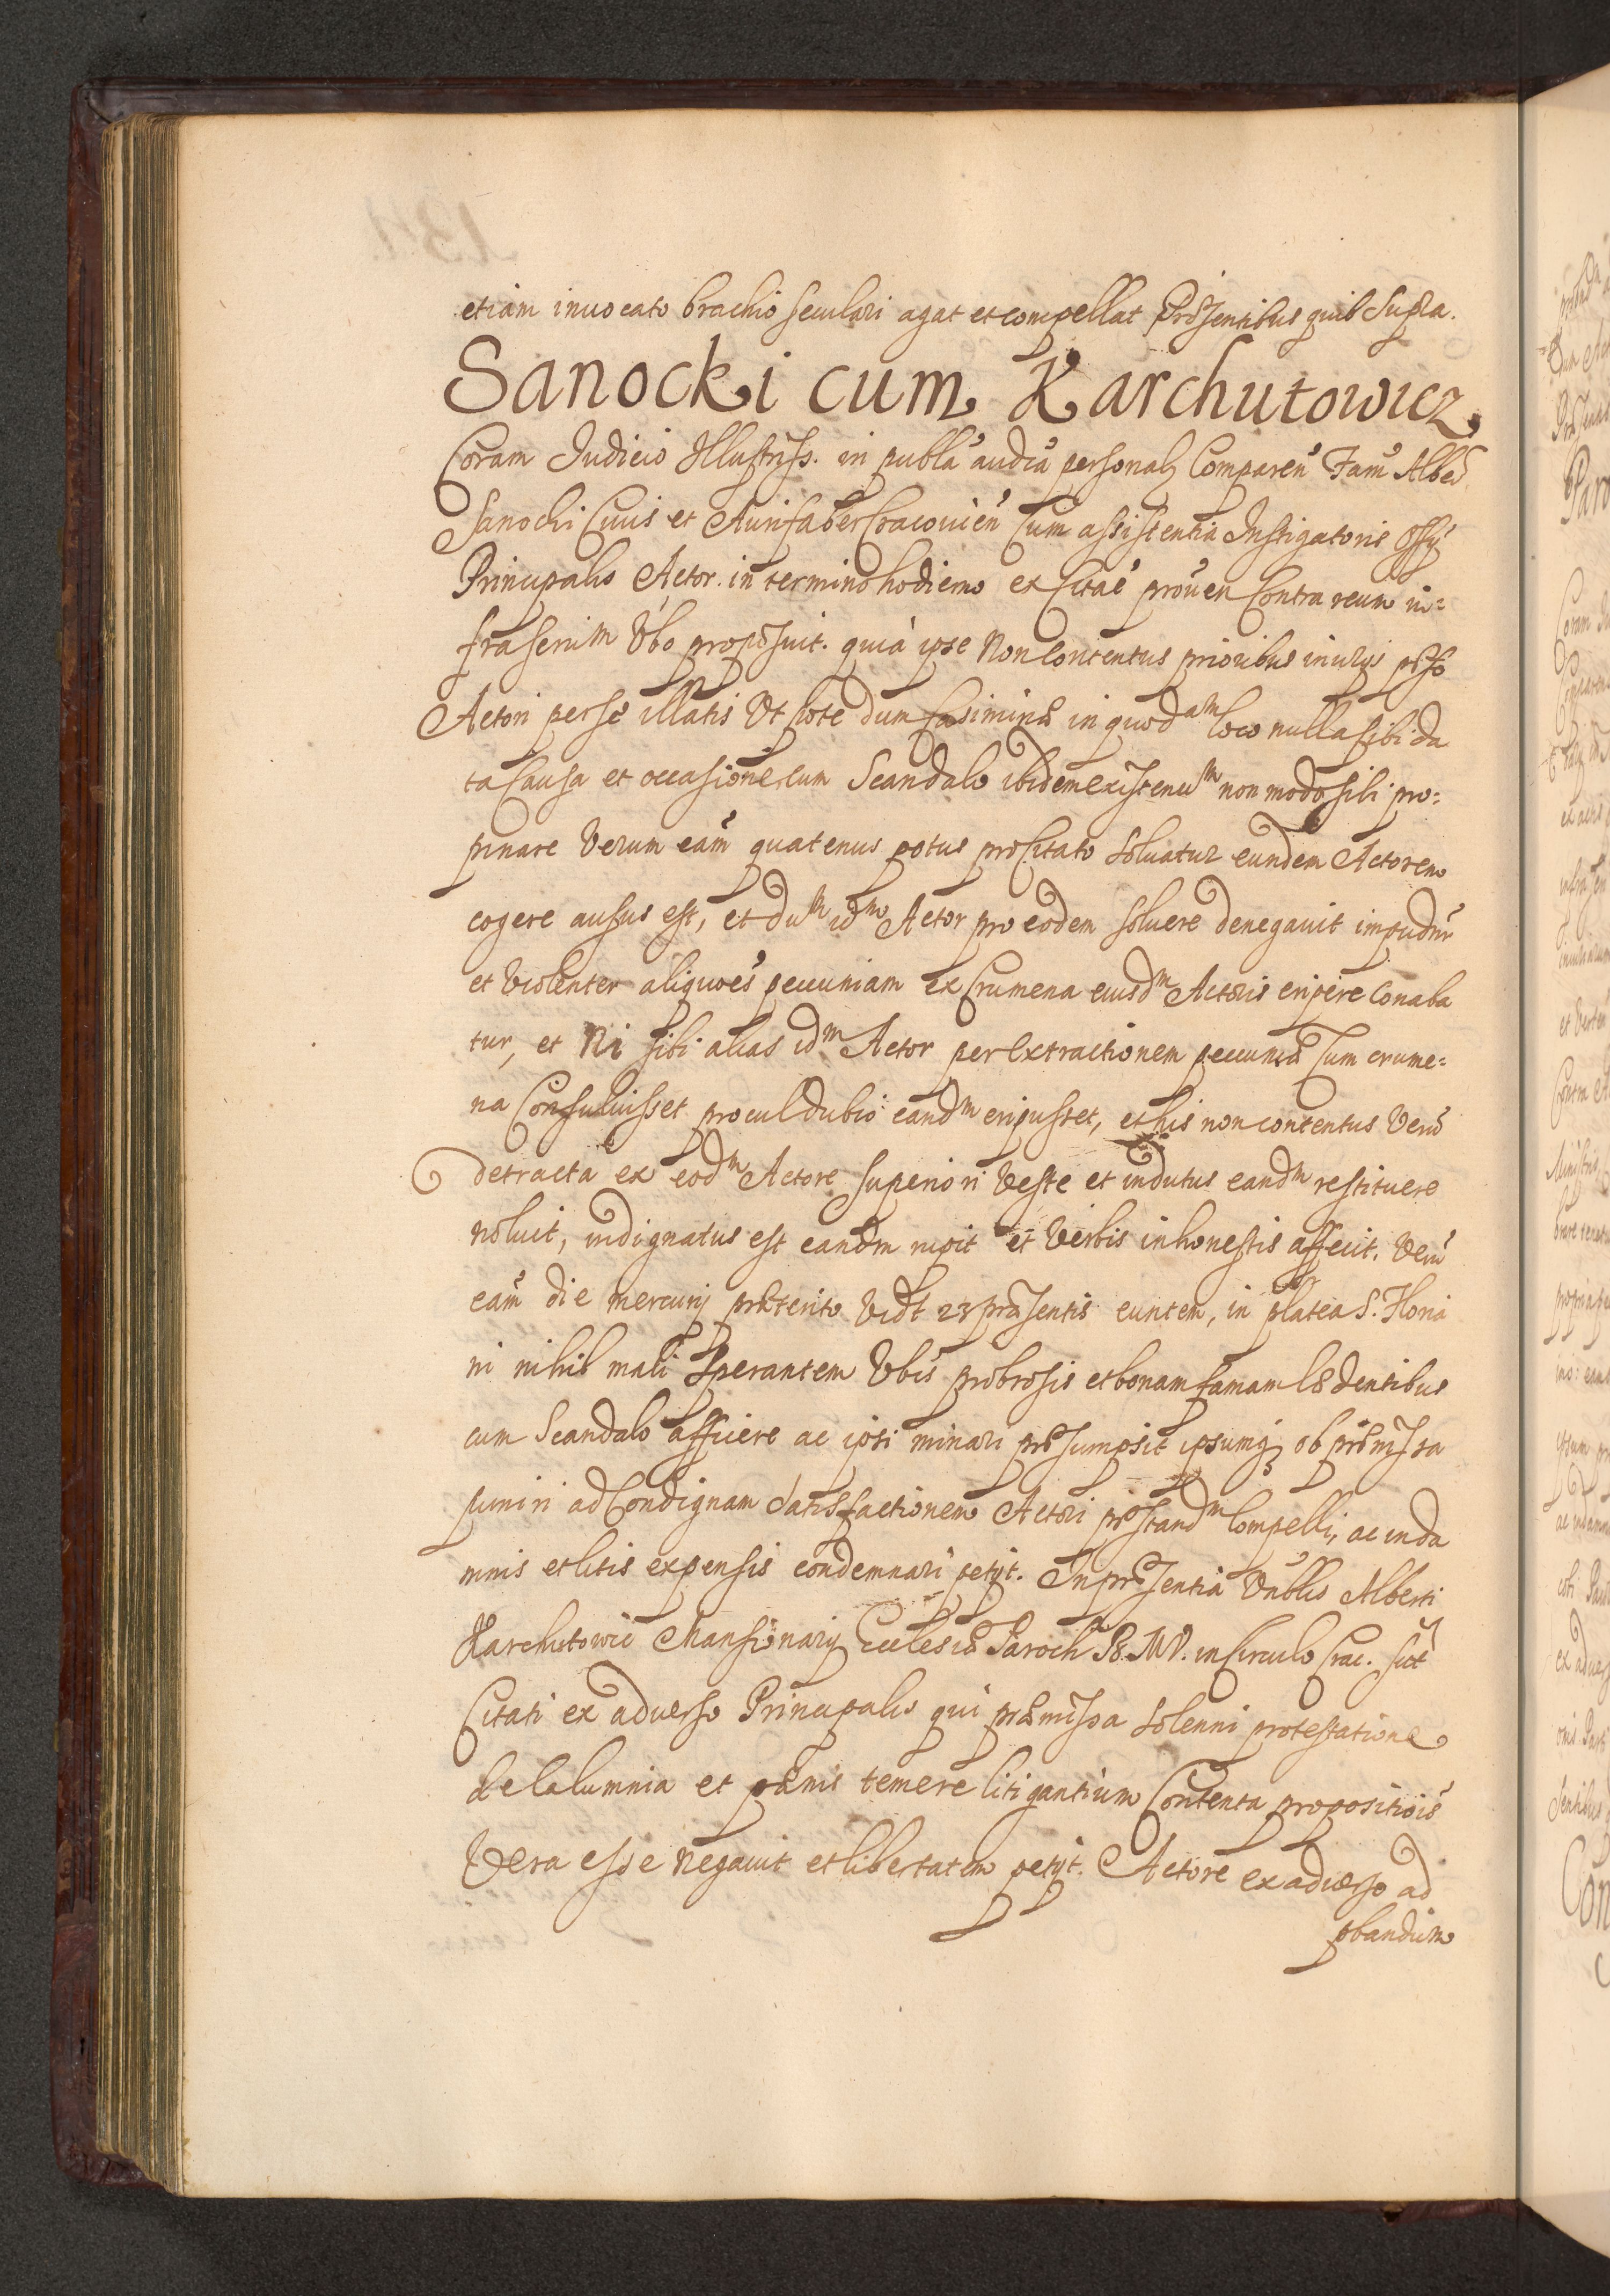 etiam inuocato brachio seculari agat et compellat Præsentibus quib Supra.
Sanocki cum Karchutowicz,
Coram Judicio Illustriss. in publã audiã personalr Compareñ Fam̃ Alber
Sanocki Ciuis et Aurifaber Cracouieñ Cum assistentia Instigatoris Offy
Principalis Actor. in termino hodierno ex Citãe prouen Contra reum in=
frascrim Vbo proposuit. quià ipse Non Contentus prioribus iniurijs prñto
Actori per se illatis Vt pote dum Casimiriæ in quodam loco nulla sibi da
ta Causa et occasione, cum Scandalo ibidem existentium non modo sibi pro=
pinare Verum eam̃ quatenus potus pro Citato Soluatur eundem Actorem
cogere ausus est, et dum idm Actor pro eodem soluere denegauit impudnr
et Violenter aliquoẽs pecuniam ex Crumena eiusdm Actoris eripere Conaba
tur, et Ni sibi alias idm Actor per extractionem pecuniæ Cum crume=
na Consuluisset procul dubio eandm eripuisset, et his non contentus Veru
detracta ex eodm Actore Superiori Veste et indutus eandm restituere
noluit, indignatus est eandm rupit et Verbis inhonestis affecit. Veru
eam̃ die mercurij præterito Vidt 23 præsentis euntem, in platea S. Floria
ni nihil mali Sperantem Vbis probrosis et bonam famam lædentibus
cum Scandalo afficere ac ipsi minari præsumpsit ipsumq ob præmissa
puniri ad Condignam Satisfactionem Actori præstandm Compelli, ac in da
mnis et litis expensis condemnari petijt. In præsentia Vnblis Alberti
Karchutowic Mansionarij Ecclesiæ Paroch B. M V. in Circulo Crac. sict
Citati ex aduerso Principalis qui præmissa Solenni protestatione
de Calumnia et pænis temere litigantium Contenta propositiõis
Vera esse Negauit et libertatem petijt. Actore ex aduerso ad
pbandum